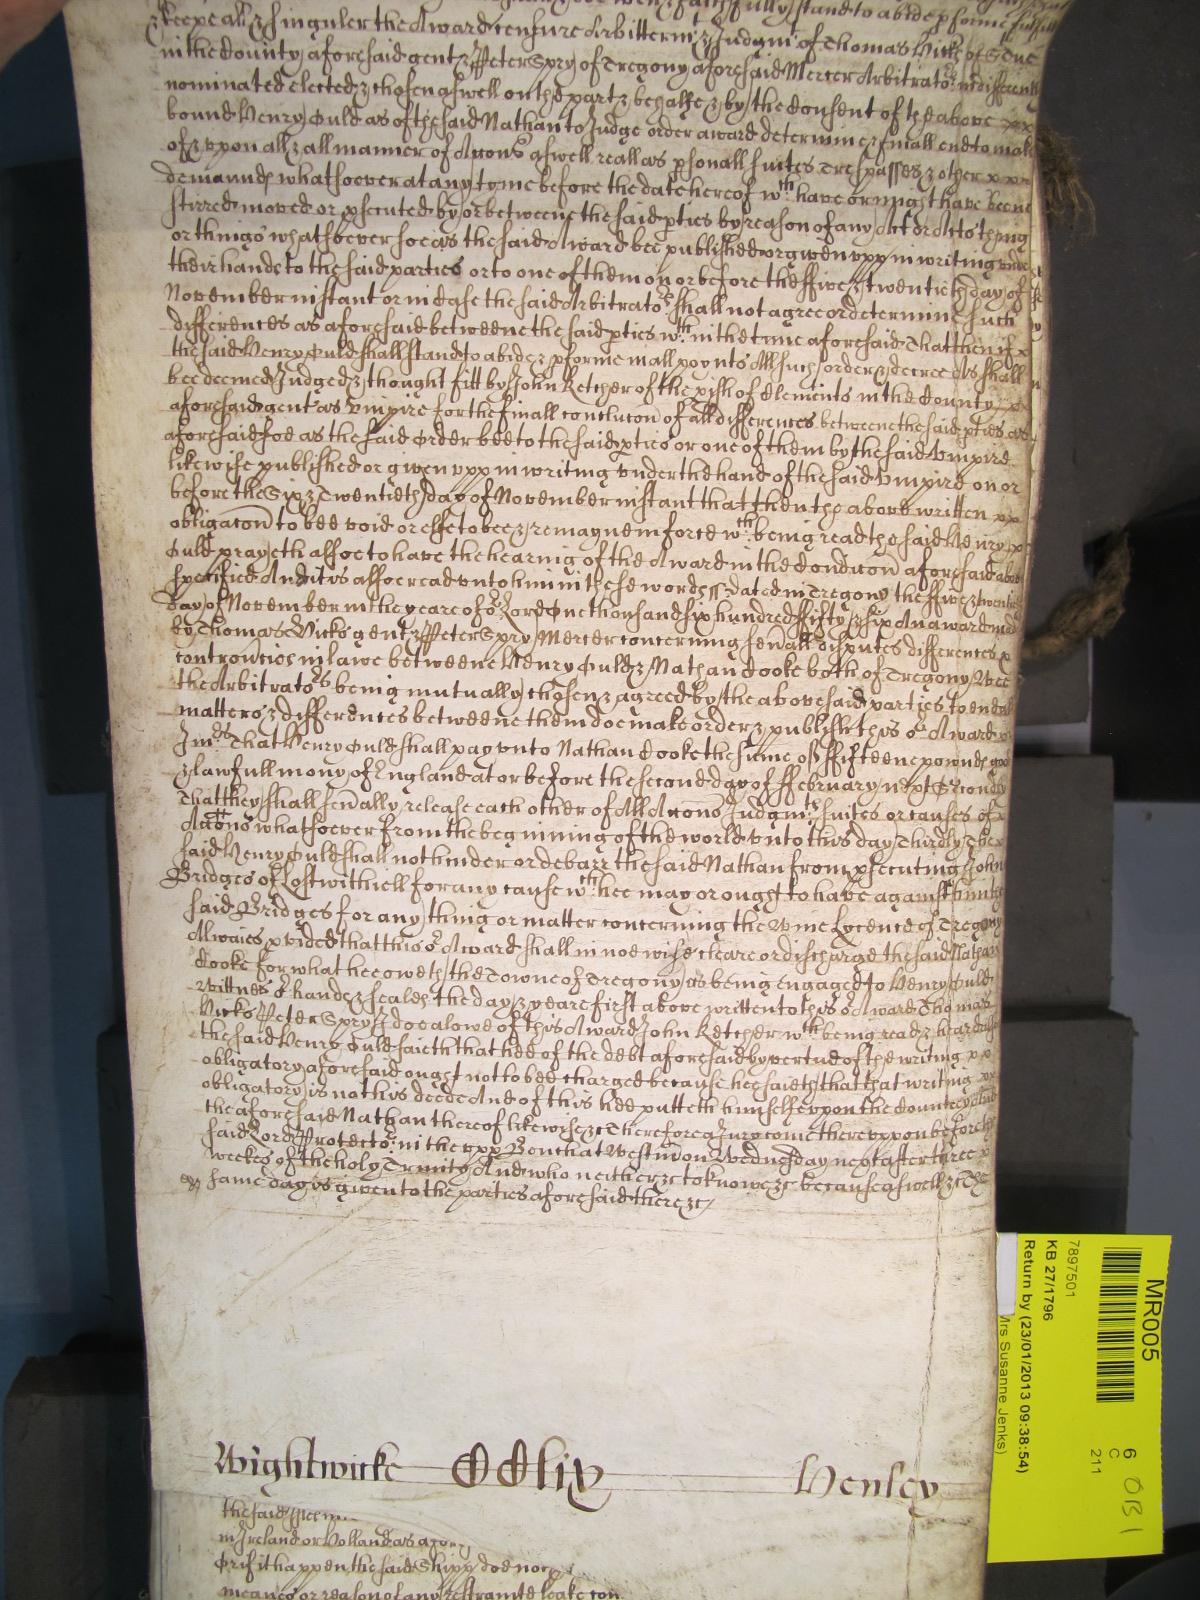 faithfully stand to abide pforme fulfill
& keepe all & singuler the Award censure Arbitterm & Judgmt of Thomas Vicks of St
in the County aforesaid gent & Peter Spry of Tregony aforesaid Mercer Arbitrators indifferently
nominated elected & chosen aswell on the part & behalfe & by the Consent of the above
bound Henry Ould as of the said Nathan to Judge order award determine & finall end to make
of & vpon all & all manner of Accons aswell reall as psonall suites Trespasses & other
demaunds whatsoever at any tyme before the date hereof wch have or might have beene
stirred moved or psecuted by or betweene the said pties by reason of any Act or Acts thing
or things whatsoever soe as the said Award bee published or given vpp in writing vnder
their hands to the said parties or to one of them on or before the ffive & twentieth day of
November instant or in Case the said Arbitrators shall not agree or determine such
differences as aforesaid betweene the said pties wthin the time aforesaid That then if
the said Henry Ould shall stand to abide & pforme in all poynts All such order & decree As shall
bee deemed Judged & thought fitt by John Ketcher of the pish of Clements in the County
aforesaid gent as Vmpire for the finall conclucon of all differences betweene the said pties as
aforesaid soe as the said Order bee to the said pties or one of them by the said Vmpire
likewise published or given vpp in writing vnder the hand of the said Vmpire on or
before the Six & Twentieth day of November instant that then the above written
obligacon to bee void or else to bee & remayne in force wch being read the said Henry
Ould prayeth alsoe to have the hearing of the Award in the Condicon aforesaid above
specified And it is alsoe read vnto him in these words ss dated in Tregony the ffive & twentieth
day of November in the yeare of or Lord One thousand six hundred ffifty & six An award made
by Thomas Vicks gent & Peter Spry Mercer concerning seuall disputes differences
controusies in lawe betweene Henry Ould & Nathan Cooke both of Tregony Wee
the Arbitrators being mutually chosen & agreed by the abovesaid parties to end all
matters & differences betweene them doe make order & publish this or Award
Imds That Henry Ould shall pay vnto Nathan Cooke the sume of ffifteene pownds good
& lawfull mony of England at or before the second day of ffebruary next Secondly
That they shall seually release each other of All Accons Judgmts suites or causes of
Accons whatsoever from the begnining of the world vnto this day Thirdly The
said Henry Ould shall not hinder or debarr the said Nathan from psecuting John
Bridges of Lostwithiell for any cause wch hee may or ought to have against him the
said Bridges for any thing or matter concerning the Wine Lycence of Tregony
Alwaies pvided that this or Award shall in noe wise cleare or discharge the said Nathan
Cooke for what hee oweth the Towne of Tregony as being engaged to Henry Ould
wittnes or hands & seales the day & yeare first above written to this or Award Thomas
Vicks Peter Spry I doe alowe of this Award John Ketcher wch being read & heard
the said Henry Ould saieth that hee of the debt aforesaid by vertue of the writing
obligatory aforesaid ought not to bee charged because hee saieth that that writing
obligatory is not his deede And of this hee putteth himselfe vpon the Countey And
the aforesaid Nathan thereof likewise &c Therefore a Jury come therevppon before the
said Lord Protector in the vpp Bench at Westmr on Wednesday next after three
weekes of the holy Trinity And who neither &c to knowe &c because aswell &c The
same day is given to the parties aforesaid there &c
Wightwicke CClix Henley
the said
in Ireland or Holland as
Or if it happen the said Shipp doe not
meanes or reason of any restrainte leake
MR005
7897501
KB 27/1796
Return by (23/01/2013 09:38:54)
Mrs Susanne Jenks)
6
C
211